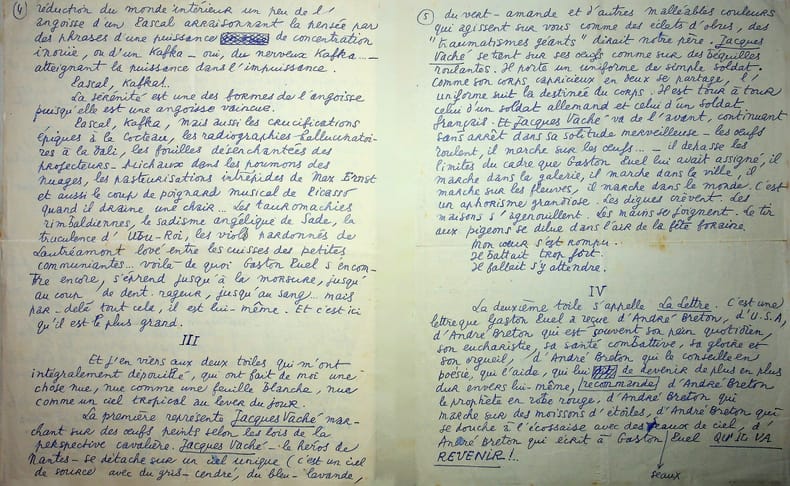 ④
réduction du monde intérieur un peu de l'
angoisse d'un Pascal arraisonnant la pensée par
des phrases d'une puissance de concentration
inouïe, ou d'un Kafka - oui, du nerveux Kafka... -
atteignant la puissance dans l'impuissance.
Pascal, Kafka!..
La sérénité est une des formes de l'angoisse
puisqu'elle est une angoisse vaincue.
Pascal, Kafka, mais aussi les crucifixions
épiques à la Cocteau, les radiographies hallucinatoi-
res à la Dali, les fouilles désenchantées des
projecteurs - Michaux dans les poumons des
nuages, les pasteurisations intrépides de Max Ernst
et aussi le coup de poignard musical de Picasso
quand il draine une chair... Les tauromachies
rimbaldiennes, le sadisme angélique de Sade, la
truculence d'Ubu-Roi, les viols pardonnés de
Lautréamont lové entre les cuisses des petites
communiantes... voilà de quoi Gaston Puel s'encom-
bre encore, s'éprend jusqu'à la morsure, jusqu'
au coup de dent rageur, jusqu'au sang... mais
par-delà tout cela, il est lui-même. Et c'est ici
qu'il est le plus grand.
III
Et j'en viens aux deux toiles qui m'ont
intégralement dépouillé, qui ont fait de moi une
chose nue, nue comme une feuille blanche, nue
comme un ciel tropical au lever du jour.
La première représente Jacques Vaché mar-
chant sur des œufs peints selon les lois de la
perspective cavalière. Jacques Vaché - le héros de
Nantes - se détache sur un ciel unique (c'est un ciel
de source avec du gris-cendré, du bleu-lavande,
⑤
du vert-amande et d'autres malléables couleurs
qui agissent sur vous comme des éclats d'obus, des
"traumatismes géants" dirait notre père. Jacques
Vaché se tient sur ses œufs comme sur des béquilles
roulantes. Il porte un uniforme de simple soldat.
Comme son corps capricieux en deux se partage, l'
uniforme suit la destinée du corps. Il est tour à tour
celui d'un soldat allemand et celui d'un soldat
français. Et Jacques Vaché va de l'avant, continuant
sans arrêt dans sa solitude merveilleuse - les œufs
roulent, il marche sur les œufs... - il dépasse les
limites du cadre que Gaston Puel lui avait assigné, il
marche dans la galerie, il marche dans la ville, il
marche sur les fleuves, il marche dans le monde. C'est
un aphorisme grandiose. Les digues crèvent. Les
maisons s'agenouillent. Les mains se joignent. Le tir
aux pigeons se dilue dans l'air de la fête foraine.
Mon cœur s'est rompu.
Il battait trop fort.
Il fallait s'y attendre.
IV
La deuxième toile s'appelle La Lettre. C'est une
lettre que Gaston Puel a reçue d'André Breton, d'U.S.A,
d'André Breton qui est souvent son pain quotidien,
son eucharistie, sa santé combattive, sa gloire et
son orgueil, d'André Breton qui le conseille en
poésie, qui l'aide, qui lui de devenir de plus en plus
dur envers lui-même, recommande d'André Breton
le prophète en robe rouge, d'André Breton qui
marche sur des moissons d'étoiles, d'André Breton qui
se douche à l'écossaise avec des eaux de ciel, d'
André Breton qui écrit à Gaston Puel QU'IL VA
REVENIR!..
seaux